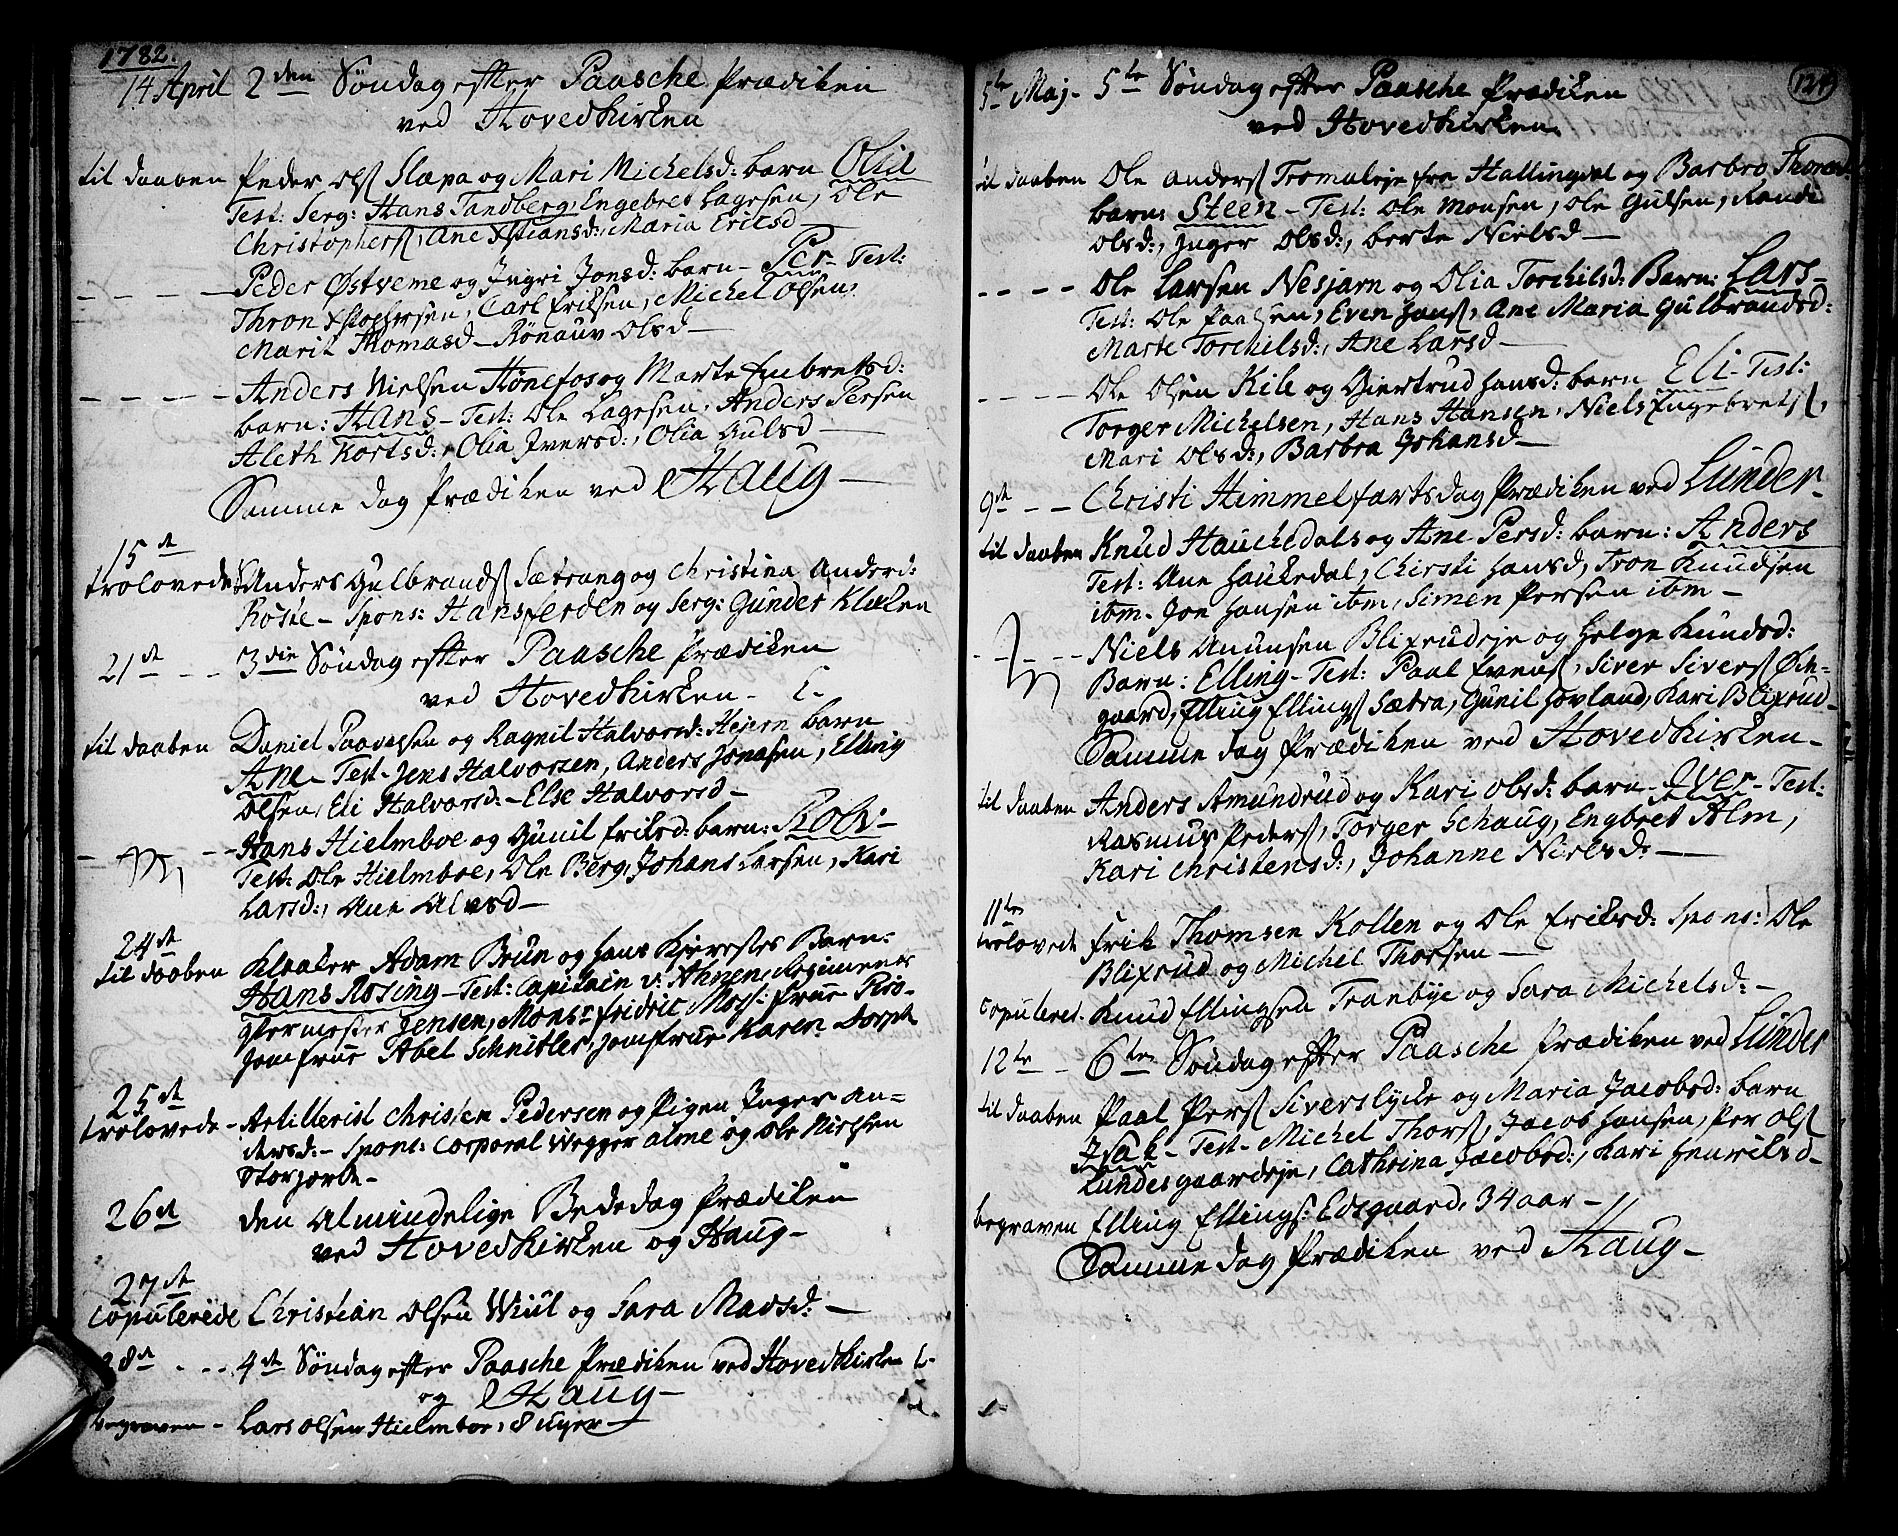 1782.
14 April 2den Søndag efter Paasche Prædiken
ved Hovedkirken
til daaben Peder Ols Slæpa og Mari Michelsd: barn Olia
Test: Serg: Hans Tandberg, Engebret Lagesen, Ole
Christophers, Ane Xstiansd:, Maria Eriksd
Peder Østveme og Ingri Jonsd: barn - Per - Test:
Thron Xstophersen, Carl Eriksen, Michel Olsen.
Marit Thomasd - Rønauv Olsd
Anders Nielsen Hønefos og Marte Embretsd:
barn: Hans - Test: Ole Lagesen, Anders Persen
Aleth Kortsd:, Olia Iversd:, Olia Gulsd
Samme dag Prædiken ved Haug
15de
trolovede Anders Gulbrands Sætrang og Christina Andersd:
Roste - Spons: Hans Ferden og Serg: Gunder Klæken
21de - - 3die Søndag efter Paasche Prædiken
ved Hovedkirken -
til daaben Daniel Paavelsen og Ragnil Halvorsd: Hejern barn
Ane - Test - Jens Halvorsen, Anders Jonasen, Elling
Olsen, Eli Halvorsd: - Else Halvorsd -
Hans Hielmboe og Gunil Eriksd: barn: Rolv -
Test: Ole Hielmboe, Ole Berg, Johans Larsen, Kari
Larsd:, Ane Alvsd -
24de
til daaben Klokker Adam Brun og Hans Kjerestes Barn:
Hans Rosing - Test: Capitain v: Ahnen, Regiments
qvermester Jensen, Monsr Fridric Mos: Frue
Jomfrue Abel Schnitler, Jomfrue Karen Dorph
25de
trolovede - Artillerist Christen Pedersen og Pigen Inger An=
dersd: - Spons: Corporal Wegger Alme og Ole Nielsen
Storjorde -
26de den Almindelige Bededag Prædiken
ved Hovedkirken og Haug -
27de
Copulerede Christian Olsen Wiul og Sara Madsd: -
28de - - - 4de Søndag efter Paasche Prædiken ved Hovedkirken
og Haug -
begraven - Lars Olsen Hielmboe, 8 uger -
124
5te Maj - 5te Søndag efter Paasche Prædiken
ved Hovedkirken
til daaben Ole Anders Tromaleje fra Hallingdal og Barbro Thorsd:
barn: Steen - Test: Ole Monsen, Ole Gulsen, Randi
Olsd:, Inger Olsd:, Berte Nielsd -
- - - - Ole Larsen Nesjarn og Olia Torchilsd: Barn: Lars -
Test: Ole Paalsen, Even Hans, Ane Maria Gulbrandsd:
Marte Torchilsd:, Ane Larsd -
- - - - Ole Olsen Kile og Giertrud Hansd: barn Eli - Test:
Torger Michelsen, Hans Hansen, Niels Engebrets,
Mari Olsd:, Barbra Johansd -
9de - - Christi Himmelfartsdag Prædiken ved Lunder -
til daaben Knud Hauchedals og Ane Persd: barn: Anders
Test: Ane Haukedal, Chirsti Hansd, Tron Knudsen
ibm. Jon Hansen ibm, Simen Persen ibm -
Niels Anunsen Blixrudeje og Helge Knudsd:
Barn: Elling - Test: Paal Evens, Siver Sivers Øde-
gaard, Elling Ellings Sætra, Gunil Hovland, Kari Blixrud -
Samme dag Prædiken ved Hovedkirken -
til daaben Anders Amundrud og Kari Olsd: barn - Iver - Test:
Rasmus Peders, Torger Schaug, Engbret Alm,
Kari Christensd:, Johanne Nielsd: -
11te
trolovede Erik Thomsen Kollen og Ole Eriksd: Spons: Ole
Blixrud og Michel Thorsen -
Copuleret. Knud Ellingsen Tranbye og Sara Michelsd: -
12te - 6te Søndag efter Paasche Prædiken ved Lunder
til daaben Paal Pers Siverslycke og Maria Jacobsd: barn
Isak - Test - Michel Thors, Jacob Hansen, Per Ols
Lundesgaardeje, Cathrina Jacobsd:, Kari Henriksd -
begraven Elling Ellings: Edsgaard, 34 aar -
Samme dag Prædiken ved Haug -